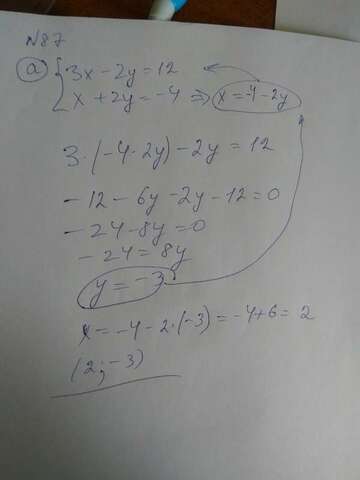 №87
а) { 3x - 2y = 12
x + 2y = -4 => x = -4 - 2y
3·(-4 - 2y) - 2y = 12
-12 - 6y - 2y - 12 = 0
-24 - 8y = 0
-24 = 8y
y = -3
x = -4 - 2·(-3) = -4+6 = 2
(2; -3)